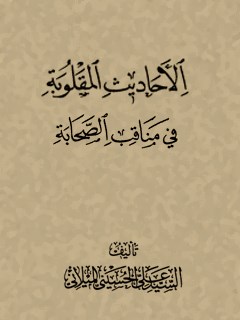 اَلأَحَادِيثِ المَقْلُوبَةِ
فِي مَنَاقِبِ الصَّحَابَةِ
تأليف
السيد علي الحسيني الميلاني